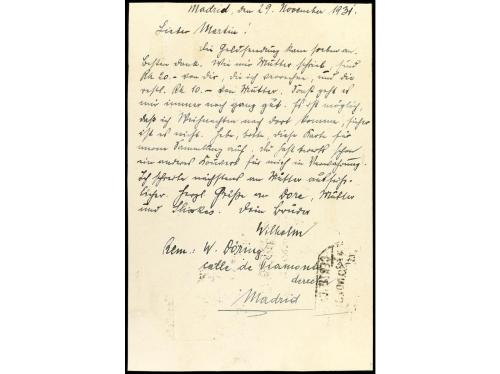 Madrid, den 29. November 1931.
Lieber Martin!
Die Geldsendung kam soeben an.
Besten Dank. Wie mir Mutter schrieb, sind
Rm 20.- von dir, die ich erwachen, und die
restl. Rm 10.- von Mutter. Sonst geht es
mir immer noch ganz gut. Es ist möglich,
daß ich Weihnachten nach dort komme, sicher
ist es nicht. Hebe, bitte, diese Karte für
meine Sammlung auf, du hast wohl schon
ein anderes Kouvert für mich in Verwahrung.
Ich schreibe nächstens an Mutter ausführ-
licher. Herzl. Grüße an Dore, Mutter
und Dein Bruder
Wilhelm
Rem.: W. Döring
calle de
derec
Madrid